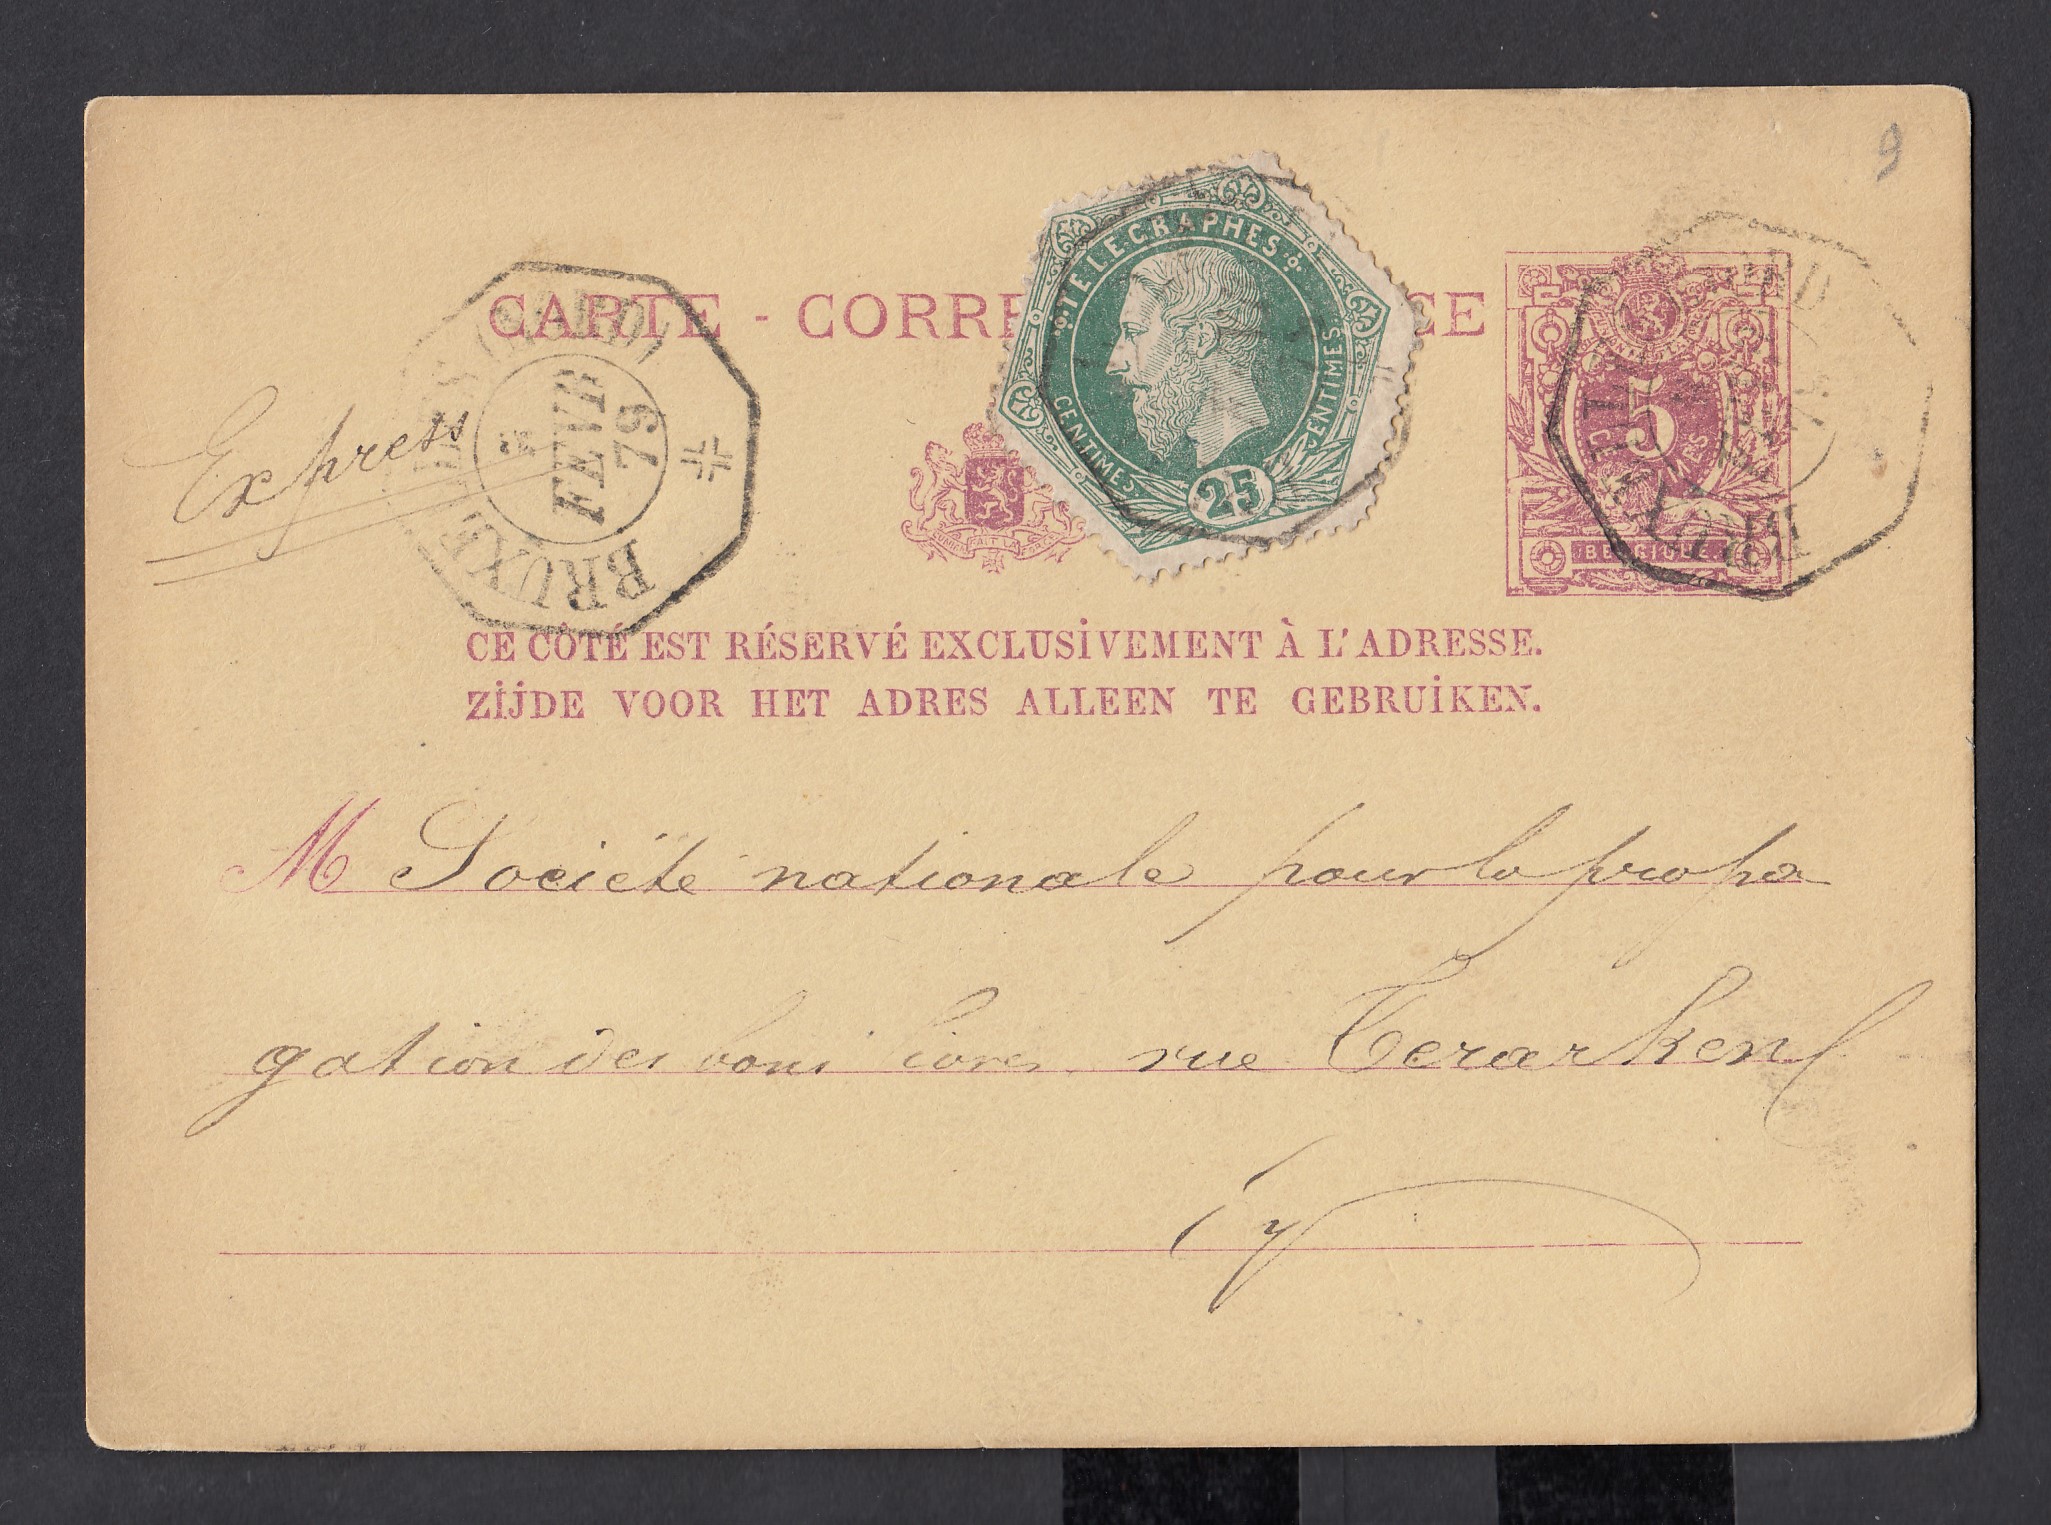 9
CARTE - CORRE CE
TÉLÉGRAPHES
CENTIMES. 25 CENTIMES.
5
CT MES
BELGIQUE
BRUXELLES (NORD)
FEVR
79
BRUX
Express
CE CÔTÉ EST RÉSERVÉ EXCLUSIVEMENT À L'ADRESSE.
ZIJDE VOOR HET ADRES ALLEEN TE GEBRUIKEN.
M Société nationale pour la propa
gation des bons livres rue Terarken